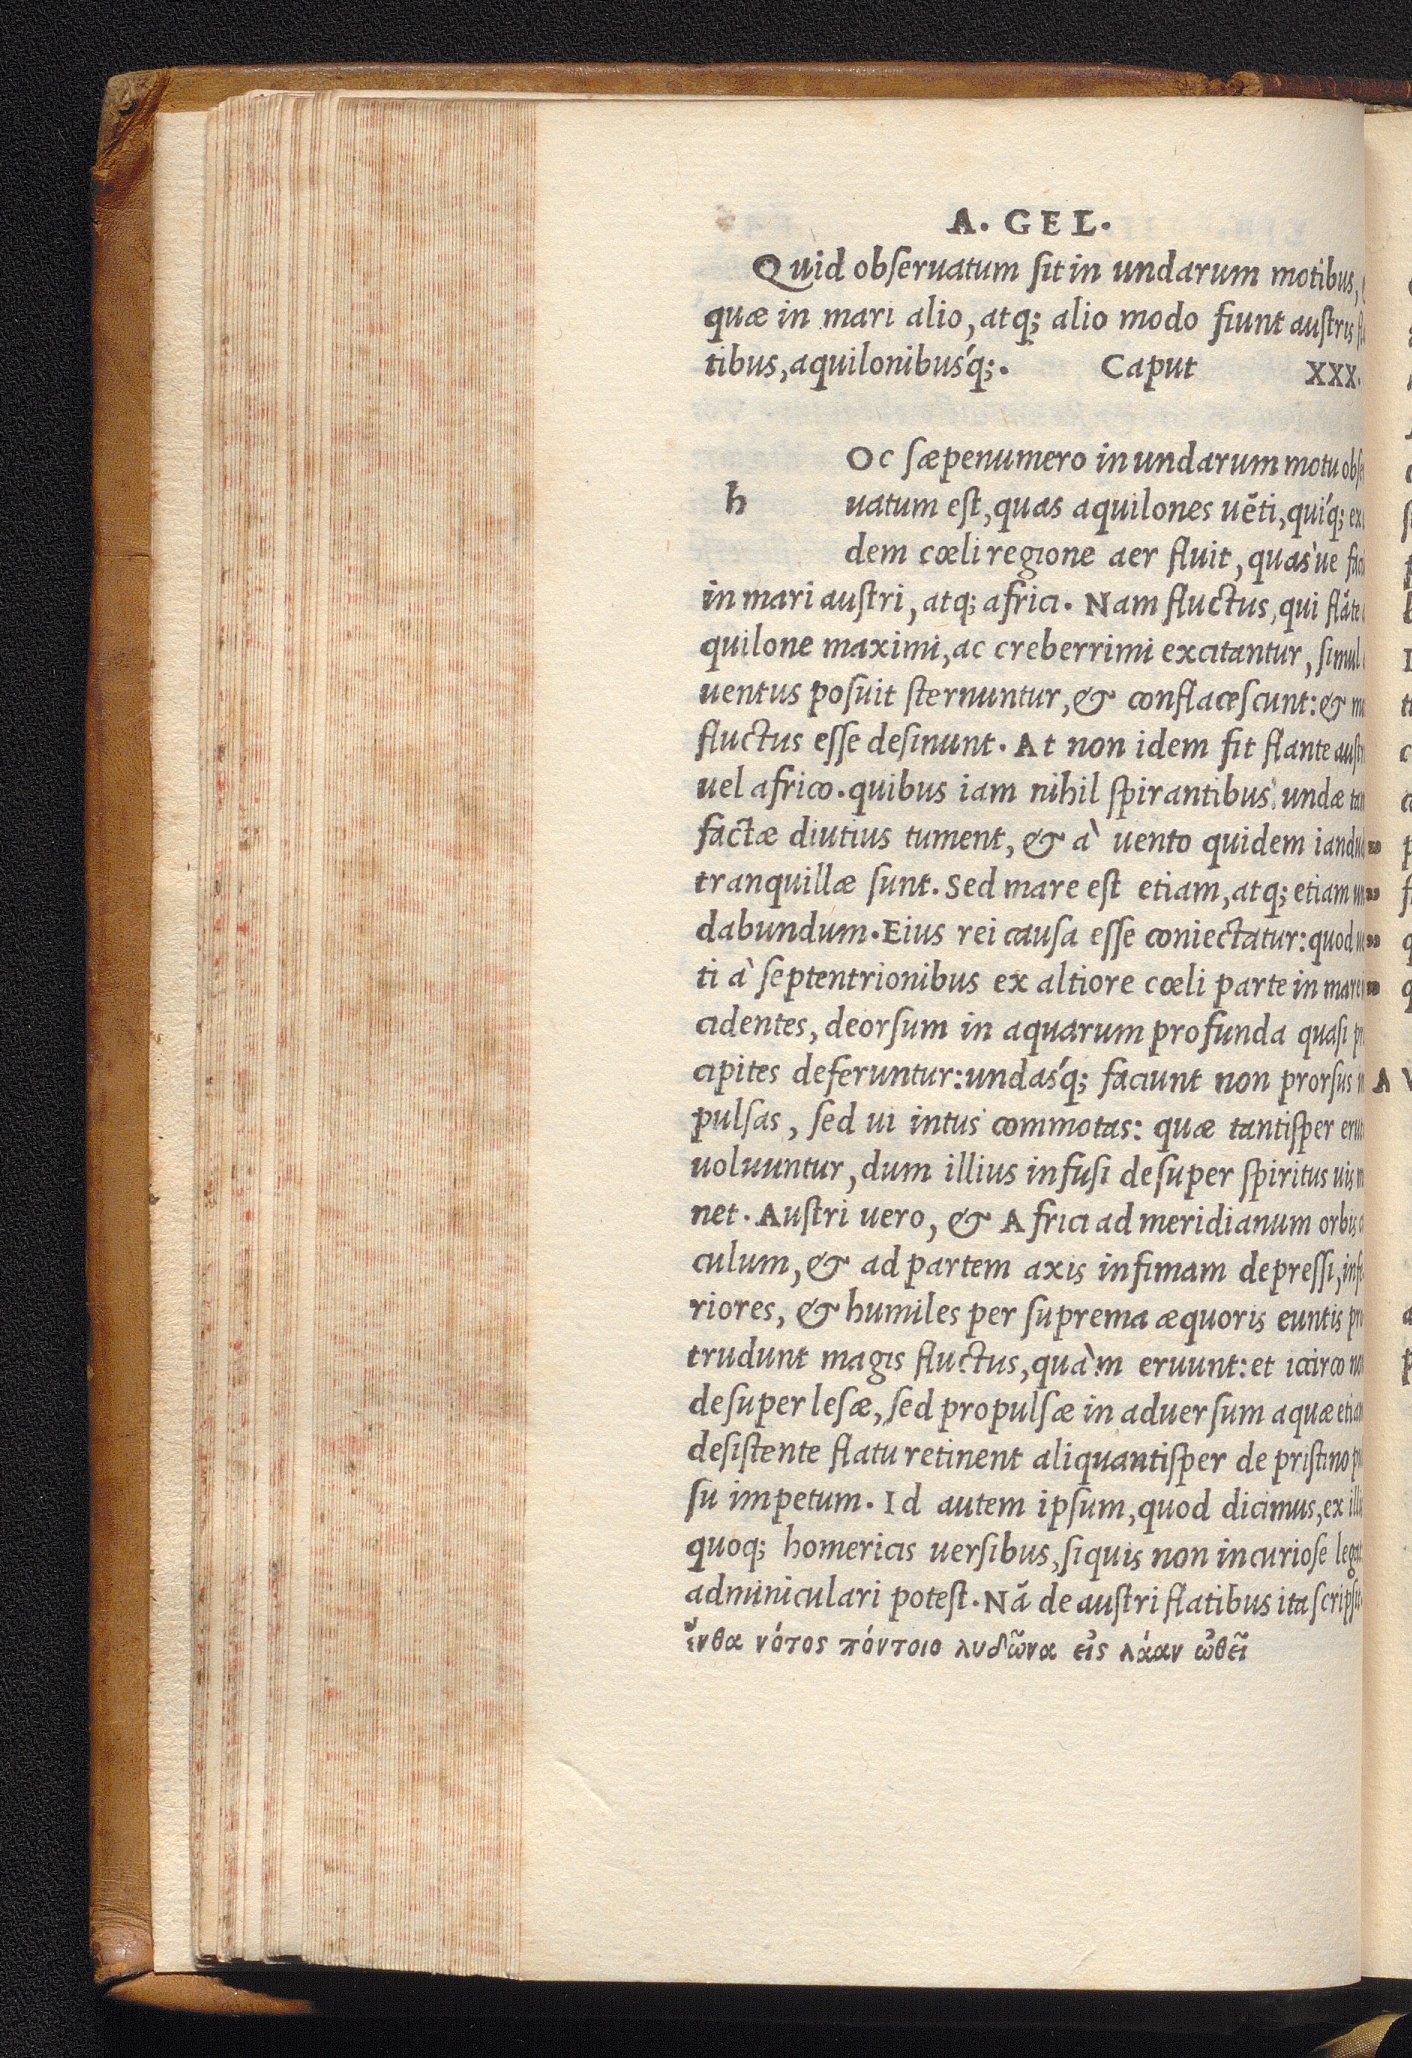 A. GEL.
Quid obſeruatum ſit in undarum motibus,
quæ in mari alio, atq; alio modo fiunt auſtris
tibus, aquilonibusq́;. Caput XXX.
h
Oc ſæpenumero in undarum motu obſe
uatum eſt, quas aquilones uẽti, quiq́; ex
dem cœli regione aer fluit, quas'ue fac
in mari auſtri, atq; africi. Nam fluctus, qui flãte
quilone maximi, ac creberrimi excitantur, ſimul
uentus poſuit ſternuntur, & conflaceſcunt: & m
fluctus eſſe deſinunt. At non idem fit flante auſt
uel africo. quibus iam nihil ſpirantibus undæ tam
factæ diutius tument, & à uento quidem iandu
tranquillæ ſunt. Sed mare eſt etiam, atq; etiam un
dabundum. Eius rei cauſa eſſe coniectatur: quod ue
ti à ſeptentrionibus ex altiore cœli parte in mare
cidentes, deorſum in aquarum profunda quaſi pr
cipites deferuntur: undasq́; faciunt non prorſus
pulſas, ſed ui intus commotas: quæ tantiſper eru
uoluuntur, dum illius infuſi deſuper ſpiritus uis m
net. Auſtri uero, & Africi ad meridianum orbis
culum, & ad partem axis infimam depreſſi, infe
riores, & humiles per ſuprema æquoris euntis pro
trudunt magis fluctus, quàm eruunt: et iccirco no
deſuper leſæ, ſed propulſæ in aduerſum aquæ etiam
deſiſtente flatu retinent aliquantiſper de priſtino pu
ſu impetum. Id autem ipſum, quod dicimus, ex illi
quoq; homericis uerſibus, ſiquis non incurioſe lega
adminiculari poteſt. Nã de auſtri flatibus ita ſcripſit
ἔνθα νότος πόντοιο λυδῶνα εἰς λάαν ὠθεῖ